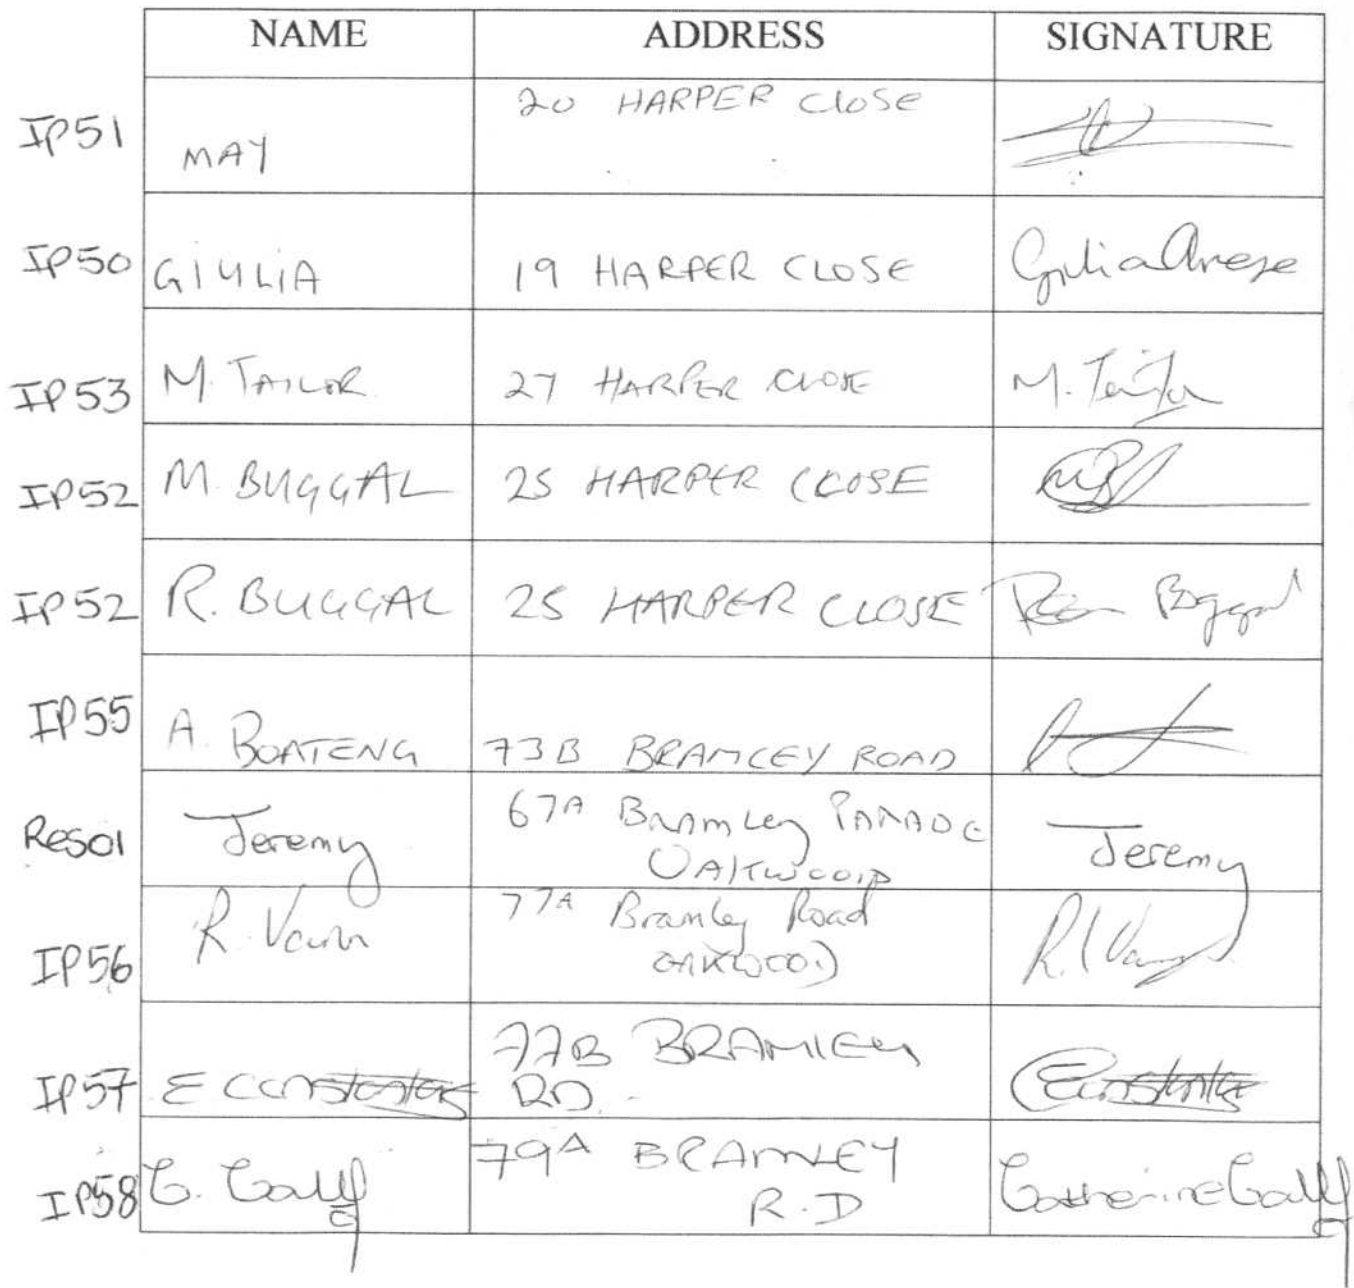 NAME ADDRESS SIGNATURE
IP51 MAY 20 HARPER Close
IP50 GIULIA 19 HARPER CLOSE Giulia
IP53 M. TAILOR 27 HARPER CLOSE M. Tailor
IP52 M. BUGGAL 25 HARPER CLOSE
IP52 R. BUGGAL 25 HARPER CLOSE
IP55 A. BOATENG 73B BRAMLEY ROAD
Res01 Jeremy 67A Bramley PARADE Jeremy
OAKWOOD
IP56 R. 77A Bramley Road R.
OAKWOOD
IP57 E 77B BRAMLEY
RD.
IP58 79A BRAMLEY Catherine
R.D